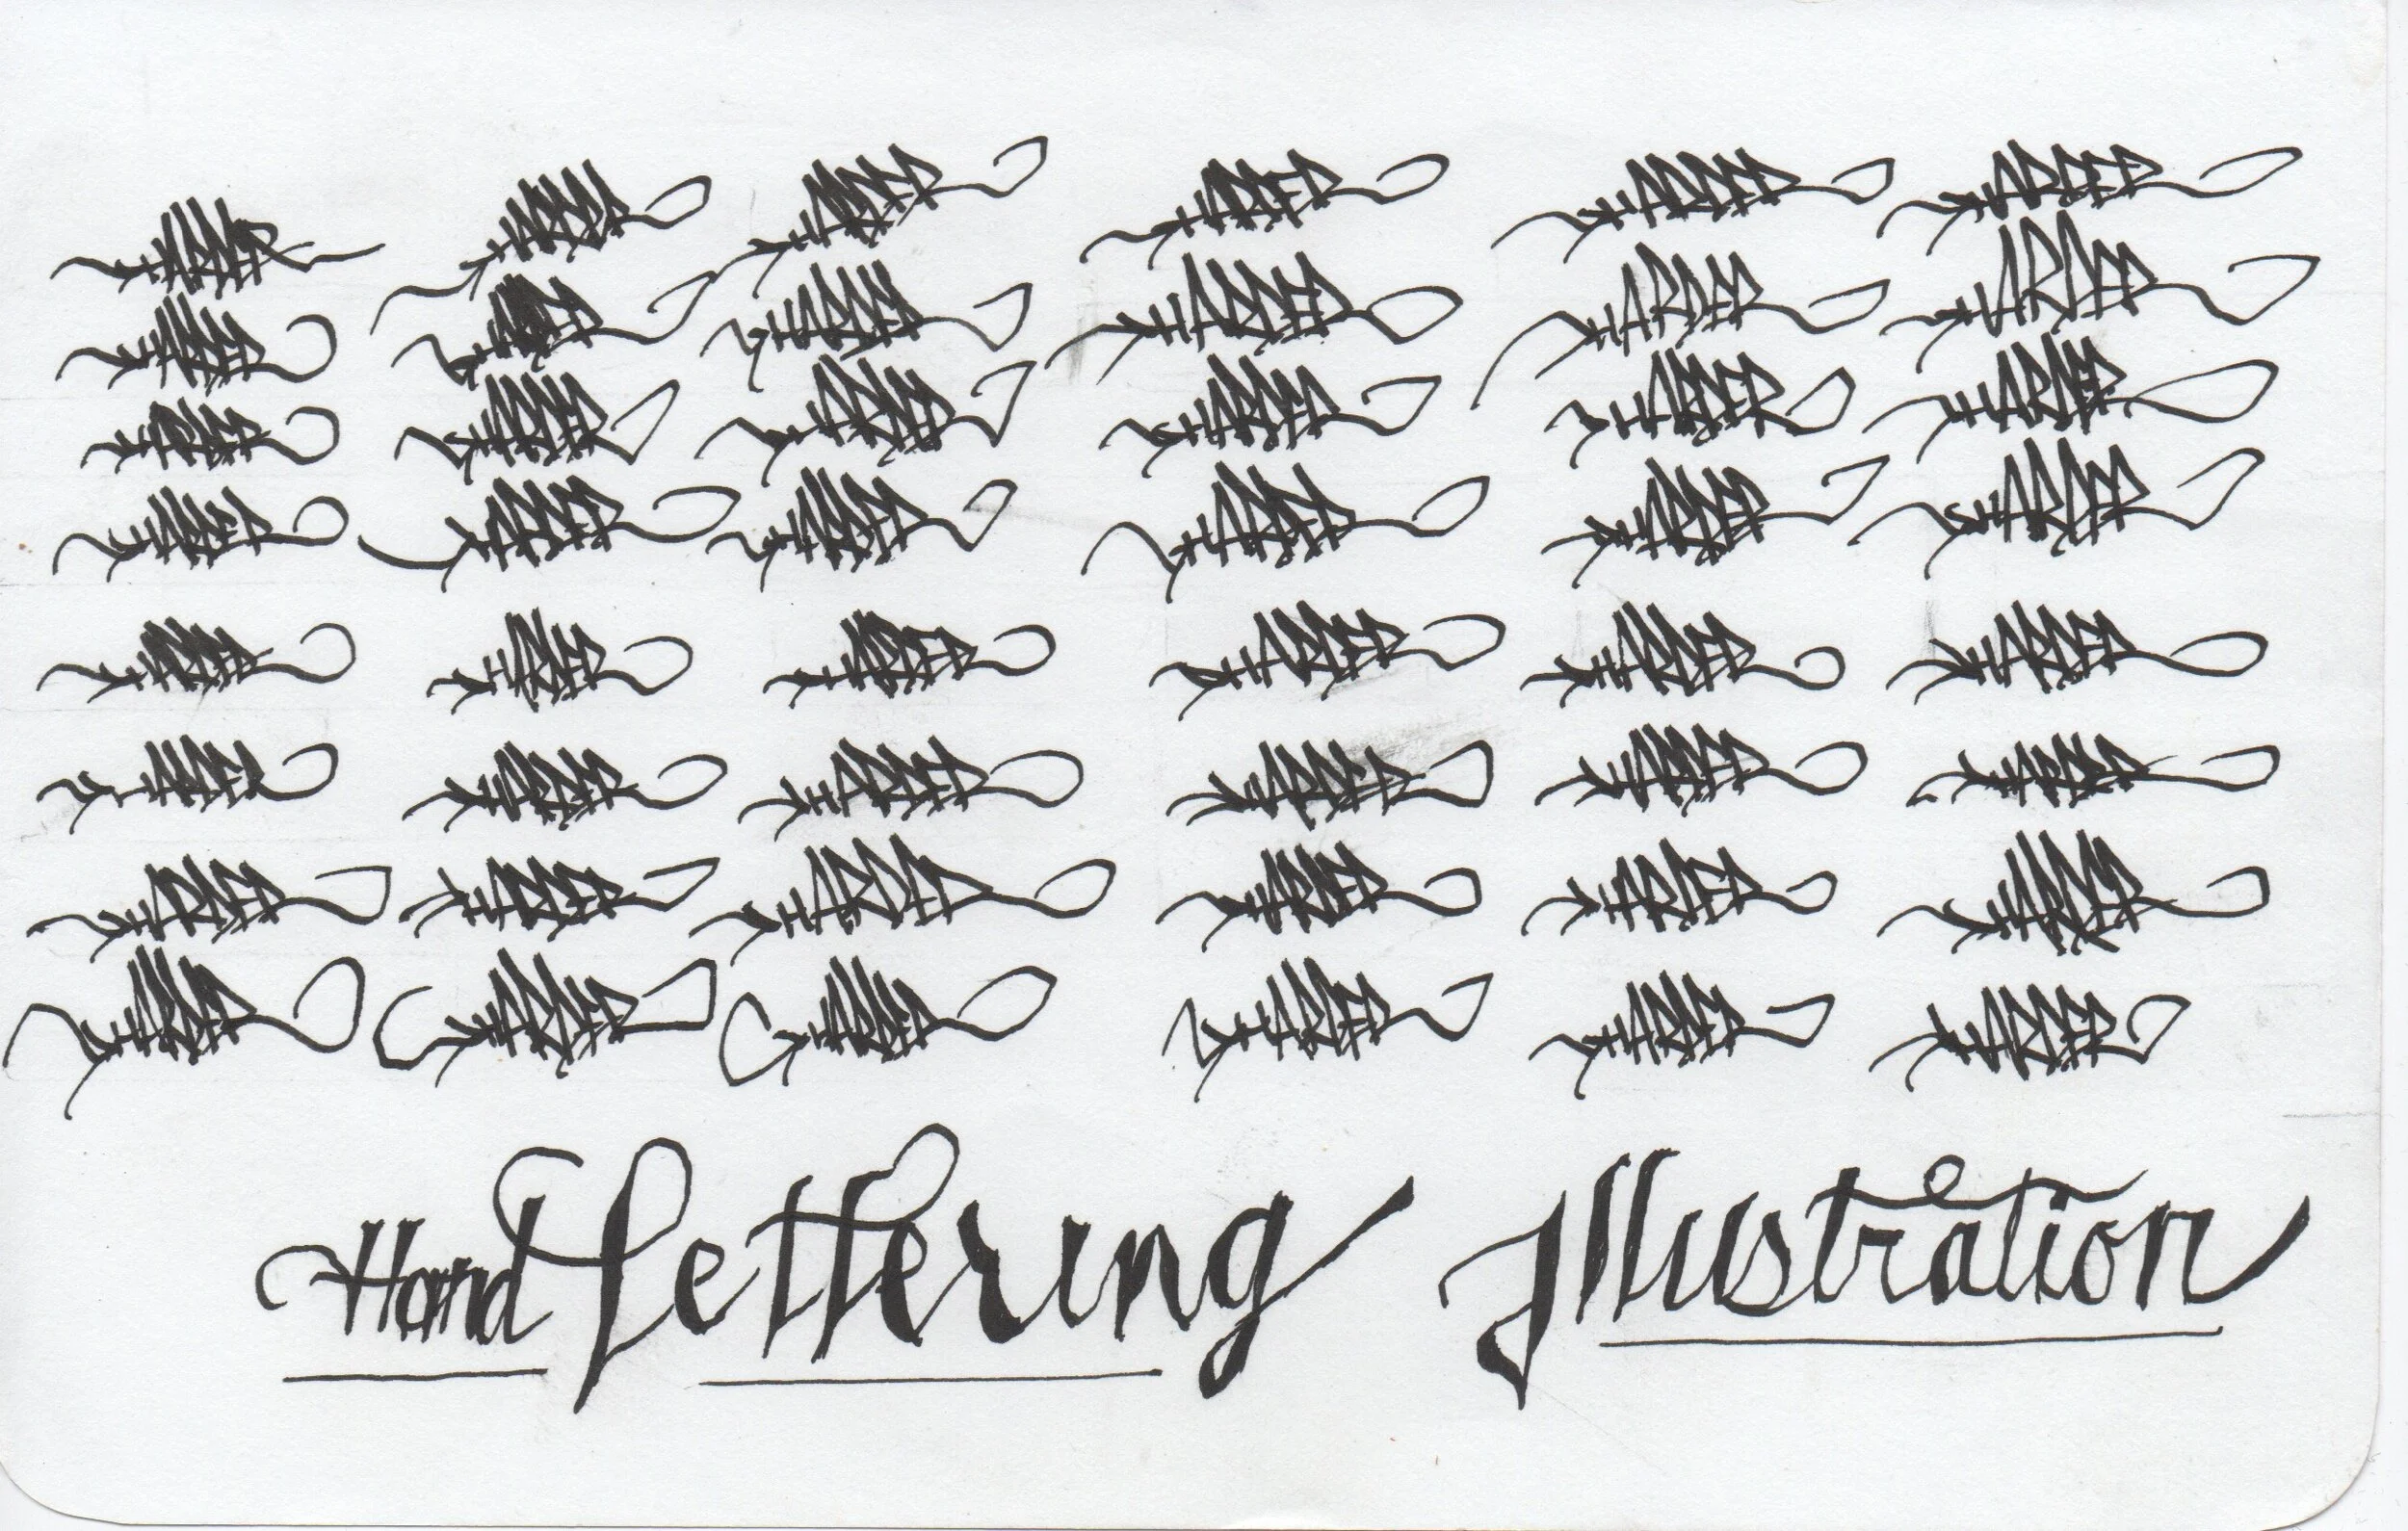 HARDER HARDER HARDER HARDER HARDER HARDER
HARDER HARDER HARDER HARDER HARDER HARDER
HARDER HARDER HARDER HARDER HARDER HARDER
HARDER HARDER HARDER HARDER HARDER HARDER
HARDER HARDER HARDER HARDER HARDER HARDER
HARDER HARDER HARDER HARDER HARDER HARDER
HARDER HARDER HARDER HARDER HARDER HARDER
HARDER HARDER HARDER HARDER HARDER HARDER
Hand Lettering Illustration